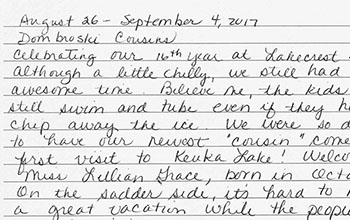 August 26 - September 4, 2017
Dombroski Cousins
Celebrating our 16th year at Lakecrest
Although a little chilly, we still had
awesome time. Believe me, the kids
still swim and tube even if they ha
chip away the ice. We were so
to have our newest "cousin" come
first visit to Keuka Lake! Welco
Miss Lillian Grace, born in Octo
On the sadder side, it's hard to
a great vacation while the people